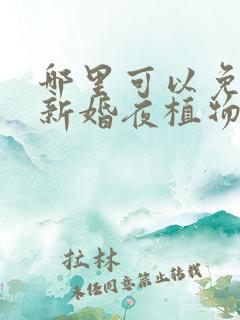 哪里可以免
新婚夜植物
拉林
未经同意禁止转载